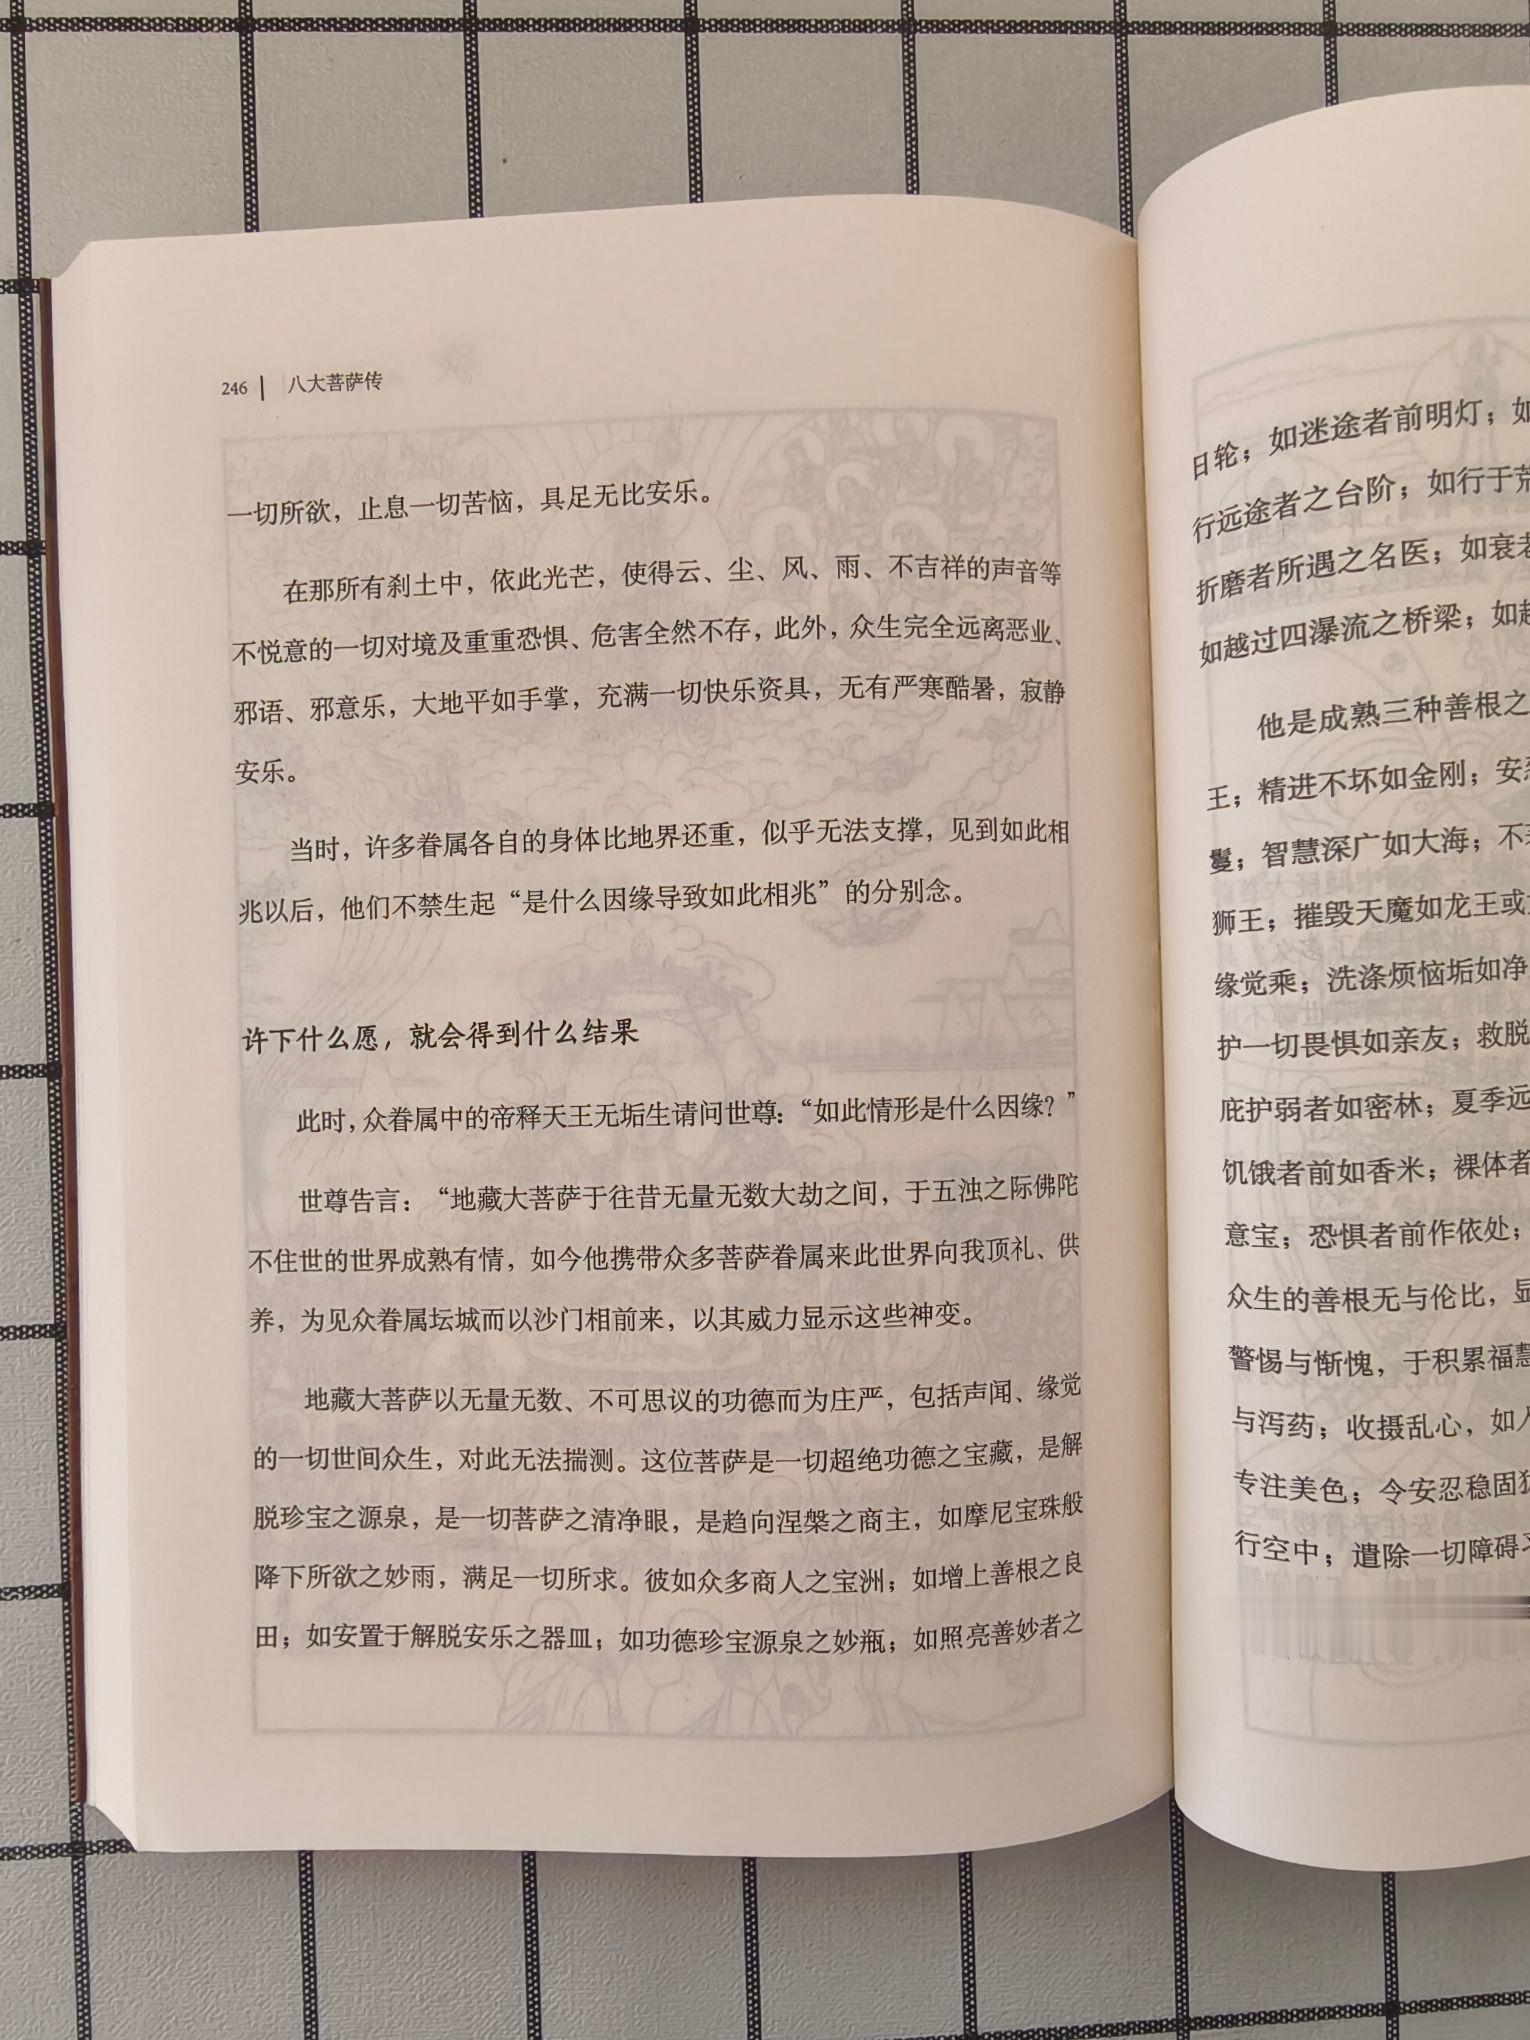 246 | 八大菩萨传
一切所欲，止息一切苦恼，具足无比安乐。
在那所有刹土中，依此光芒，使得云、尘、风、雨、不吉祥的声音等
不悦意的一切对境及重重恐惧、危害全然不存，此外，众生完全远离恶业、
邪语、邪意乐，大地平如手掌，充满一切快乐资具，无有严寒酷暑，寂静
安乐。
当时，许多眷属各自的身体比地界还重，似乎无法支撑，见到如此相
兆以后，他们不禁生起“是什么因缘导致如此相兆”的分别念。
许下什么愿，就会得到什么结果
此时，众眷属中的帝释天王无垢生请问世尊：“如此情形是什么因缘？”
世尊告言：“地藏大菩萨于往昔无量无数大劫之间，于五浊之际佛陀
不住世的世界成熟有情，如今他携带众多菩萨眷属来此世界向我顶礼、供
养，为见众眷属坛城而以沙门相前来，以其威力显示这些神变。
地藏大菩萨以无量无数、不可思议的功德而为庄严，包括声闻、缘觉
的一切世间众生，对此无法揣测。这位菩萨是一切超绝功德之宝藏，是解
脱珍宝之源泉，是一切菩萨之清净眼，是趋向涅槃之商主，如摩尼宝珠般
降下所欲之妙雨，满足一切所求。彼如众多商人之宝洲；如增上善根之良
田；如安置于解脱安乐之器皿；如功德珍宝源泉之妙瓶；如照亮善妙者之
日轮；如迷途者前明灯；如
行远途者之台阶；如行于荒
折磨者所遇之名医；如衰老
如越过四瀑流之桥梁；如趋
他是成熟三种善根之
王；精进不坏如金刚；安
鬘；智慧深广如大海；不
狮王；摧毁天魔如龙王或
缘觉乘；洗涤烦恼垢如净
护一切畏惧如亲友；救脱
庇护弱者如密林；夏季远
饥饿者前如香米；裸体者
意宝；恐惧者前作依处；
众生的善根无与伦比，显
警惕与惭愧，于积累福慧
与泻药；收摄乱心，如
专注美色；令安忍稳固犹
行空中；遣除一切障碍